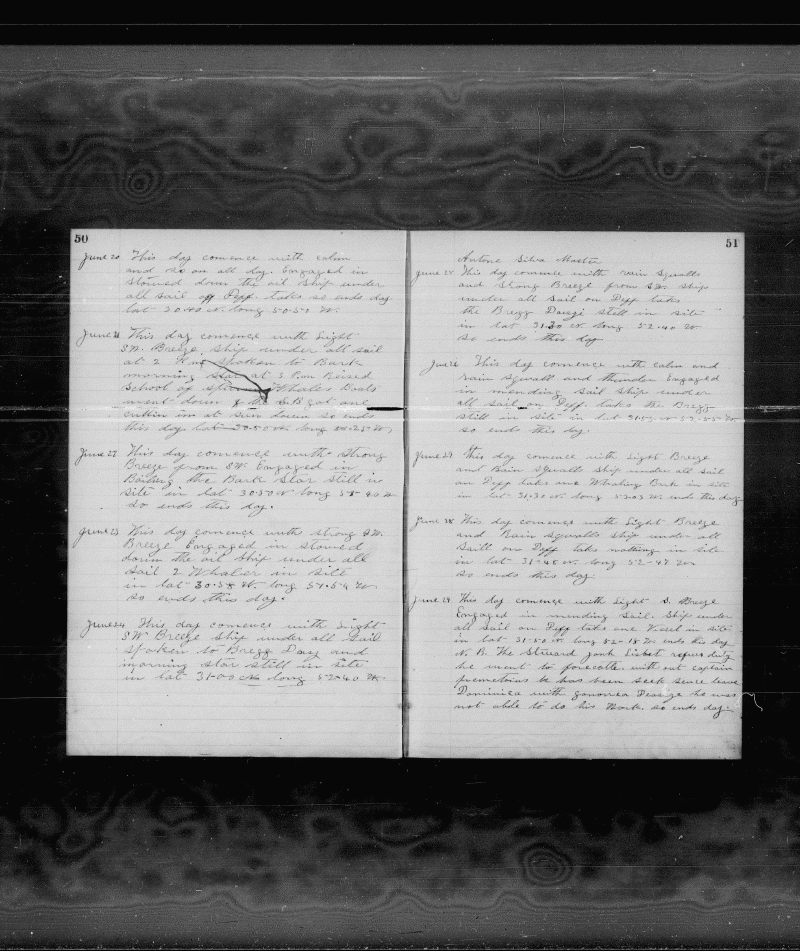 50
June 20 This day comence with calm
and so on all day. Engaged in
stowed down the oil ship under
all sail off Diff taks so ends day
lat 30.40 N. long 50.50 W.
June 21 This day comence with Light
SW. Breeze ship under all sail
at 2 P.m. spoken to Bark
morning star at 3 P.m. Reised
School of sperm Whales Boats
went down & the S.B got one
cuttin im at sun down so ends
this day lat 30.50 N. long
June 22 This day comence with strong
Breeze from SW Engaged in
Boiling the Bark Star still in
site in lat 30.50 N long
so ends this day.
June 23 This day comence with strong SW.
Breeze Engaged in stowed
down the oil ship under all
sail 2 Whaler in site
in lat 30.58 N. long 51.54 W
so ends this day.
June 24 This day comence with Light
SW Breeze ship under all sail
spoken to Bregg Daisy and
morning star still in site
in lat 31-00 N long 52-40 W.
51
Antone Silva Master
June 25 This day comence with rain squalls
and strong Breeze from SW. ship
under all sail on Diff taks
the Bregg Daisy still in site
in lat 31.30 N. long 52.40 W
so ends this day
June 26 This day comence with calm and
rain squall and thunder Engaged
in mending sail ship under
all sail on Diff taks the Bregg
still in site in lat
so ends this day.
June 27 This day comence with Light Breeze
and Rain squalls ship under all sail
on Diff taks one Whaling Bark in site
in lat 31.30 N. long 52.03 W ends this day
June 28 This day comence with Light Breeze
and Rain squalls ship under all
Saill on Diff taks nothing in site
in lat 31-45 N. long 52-47 W
so ends this day.
June 29 This day comence with Light S. Breeze
Engaged in mending Sail. Ship under
all sail on Diff taks one Vessel in site
in lat 31.50 N. long 52-18 W ends this day
N. B. The Steward refuse duty
he went to forecstle with out captain
premetions he has been seek sence leave
Dominica with gonorrea he was
not able to do his Work. so ends day.